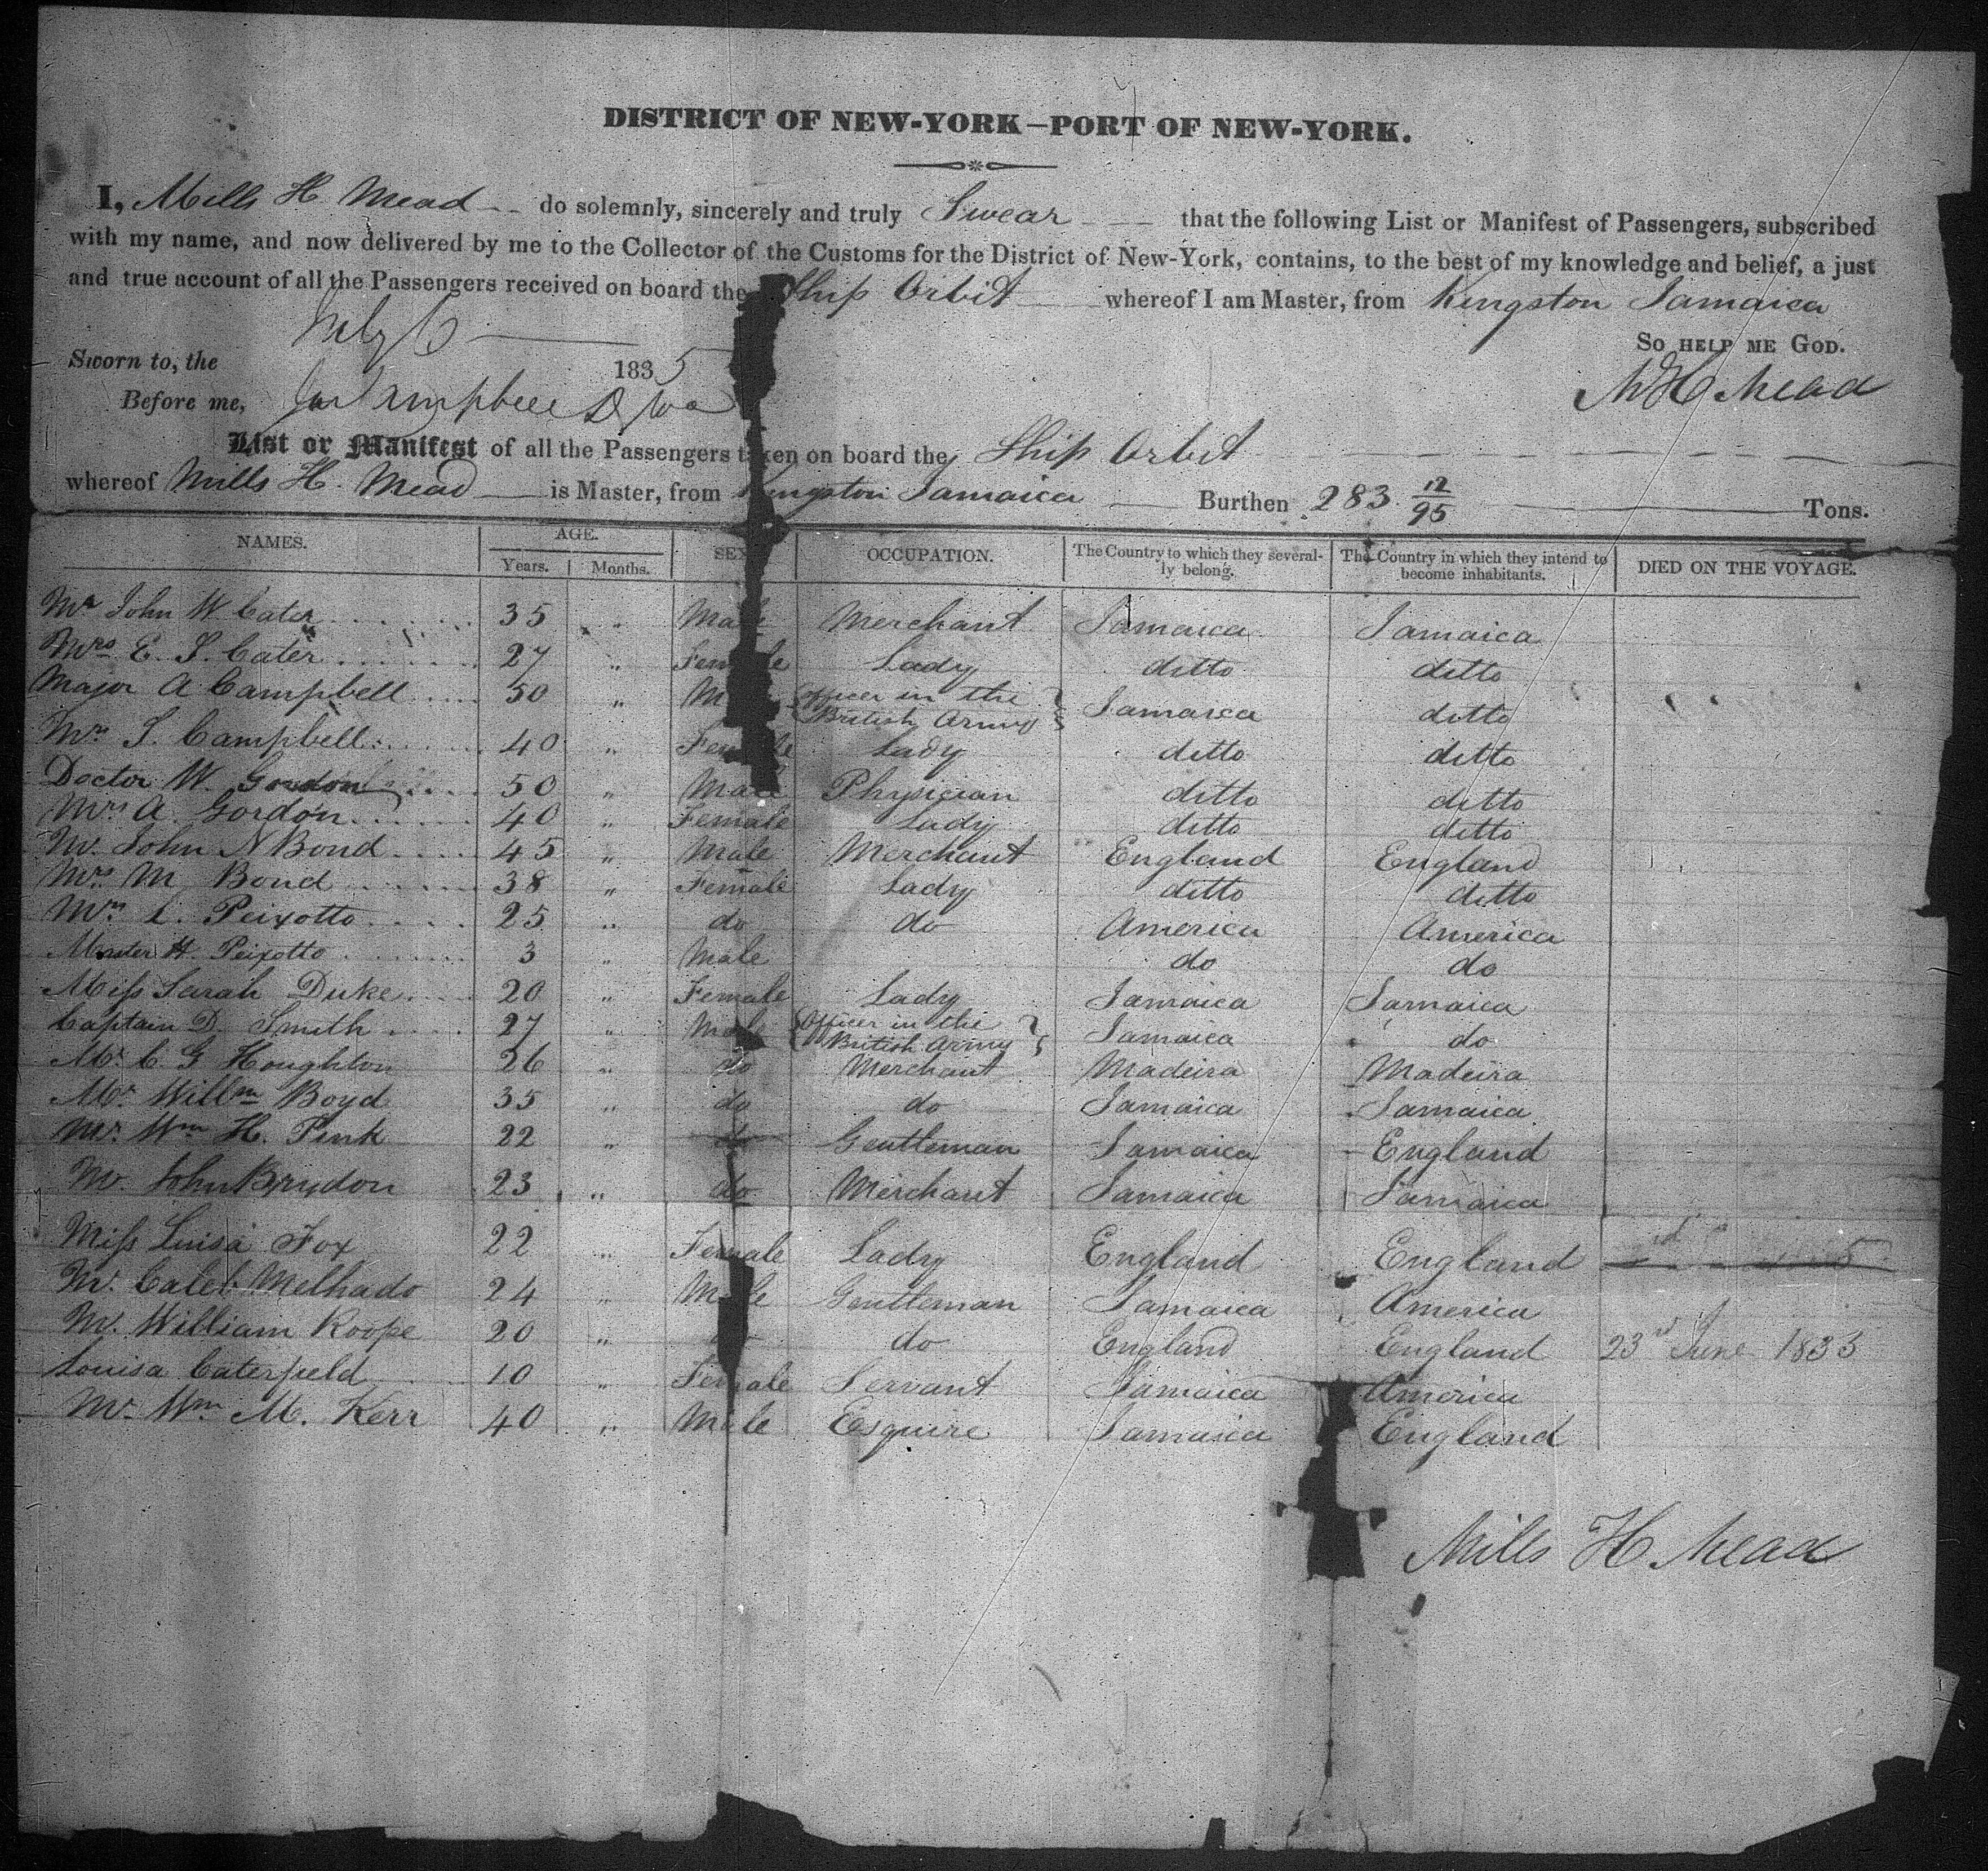 DISTRICT OF NEW-YORK—PORT OF NEW-YORK.
I, Mills H. Mead do solemnly, sincerely and truly Swear that the following List or Manifest of Passengers, subscribed
with my name, and now delivered by me to the Collector of the Customs for the District of New-York, contains, to the best of my knowledge and belief, a just
and true account of all the Passengers received on board the Ship Orbit whereof I am Master, from Kingston Jamaica
So help me God.
Sworn to, the July 6 1835
M H Mead
Before me,
List or Manifest of all the Passengers taken on board the Ship Orbit
whereof Mills H. Mead is Master, from Kingston Jamaica Burthen 283 12/95 Tons.
NAMES. AGE. Years. Months. SEX OCCUPATION. The Country to which they severally belong. The Country in which they intend to become inhabitants. DIED ON THE VOYAGE.
Mr John W Cater 35 " Male Merchant Jamaica Jamaica
Mrs E. S. Cater 27 " Female Lady ditto ditto
Major A Campbell 50 " M Officer in the British Army Jamaica ditto
Mrs S. Campbell 40 " Female Lady ditto ditto
Doctor W. Gordon 50 " Male Physician ditto ditto
Mrs A. Gordon 40 " Female Lady ditto ditto
Mr. John N Bond 45 " Male Merchant England England
Mrs M Bond 38 " Female Lady ditto ditto
Mrs L. Peixotto 25 " do do America America
Master H. Peixotto 3 " Male do do
Miss Sarah Duke 20 " Female Lady Jamaica Jamaica
Captain D. Smith 27 " Male Officer in the British Army Jamaica do
Mr. C. G Houghton 26 " do Merchant Madeira Madeira
Mr. Willm Boyd 35 " do do Jamaica Jamaica
Mr. Wm H. Pink 22 " do Gentleman Jamaica England
Mr. John Brydon 23 " do Merchant Jamaica Jamaica
Miss Luisa Fox 22 " Female Lady England England
Mr. Caleb Melhado 24 " Male Gentleman Jamaica America
Mr. William Roope 20 " do England England 23rd June 1835
Louisa Caterfield 10 " Female Servant Jamaica America
Mr. Wm M. Kerr 40 " Male Esquire Jamaica England
Mills H Mead